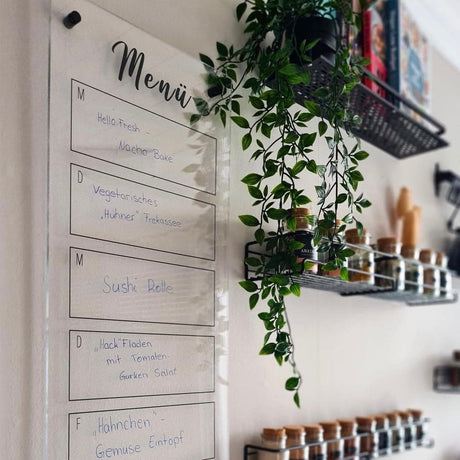 Menü
M
Hello Fresh -
Nacho Bake
D
Vegetarisches
„Hühner" Frekassee
M
Sushi Rolle
D
„Hack" Fladen
mit Tomaten-
Gurken Salat
F
„Hähnchen" -
Gemüse Eintopf